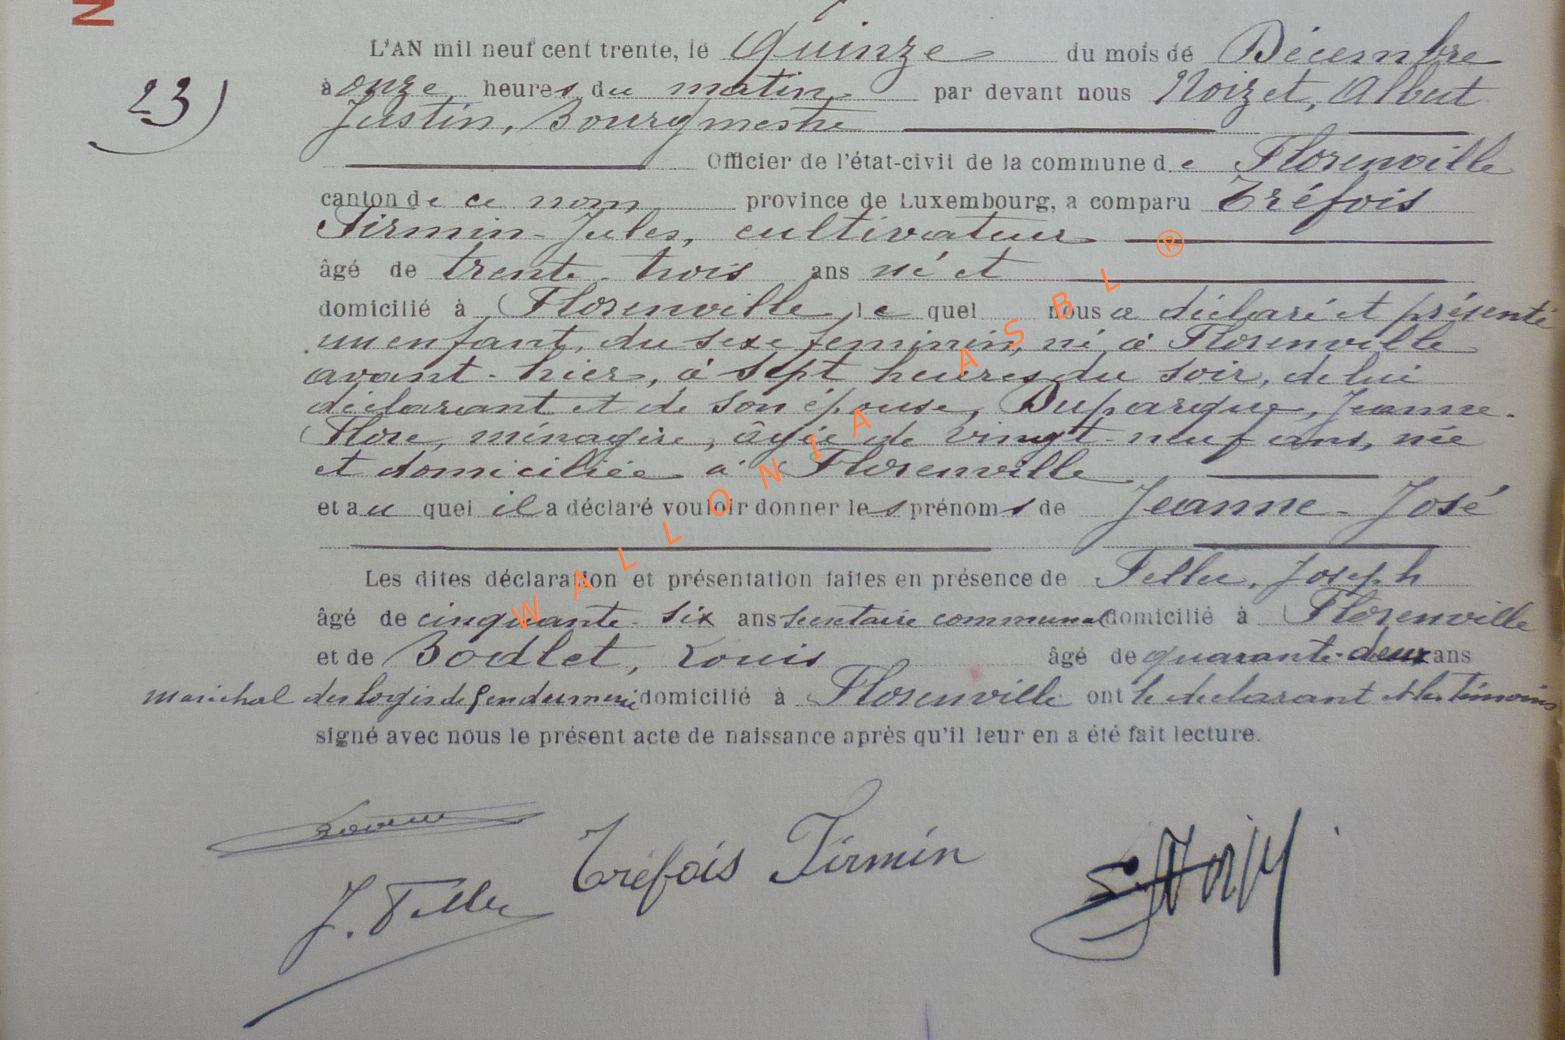 N
L'AN mil neuf cent trente, le Quinze du mois de Décembre
23) à onze heures du matin par devant nous Noizet, Albert
Justin, Bourgmestre
Officier de l'état-civil de la commune de Florenville
canton de ce nom province de Luxembourg, a comparu Tréfois
Firmin-Jules, cultivateur
âgé de trente-trois ans né et
domicilié à Florenville lequel nous a déclaré et présenté
un enfant du sexe feminin, né à Florenville
avant-hier, à sept heures du soir, de lui
déclarant et de son épouse, Duparque, Jeanne-
Flore, ménagère, âgée de vingt-neuf ans, née
et domiciliée à Florenville
et auquel il a déclaré vouloir donner les prénoms de Jeanne-José
Les dites déclaration et présentation faites en présence de Feller, Joseph
âgé de cinquante-six ans secrétaire communal domicilié à Florenville
et de Bodlet, Louis âgé de quarante-deux ans
Maréchal des logis de gendarmerie domicilié à Florenville ont le déclarant et les témoins
signé avec nous le présent acte de naissance après qu'il leur en a été fait lecture.
Tréfois Firmin
J. Feller
WALLONIA ASBL ®